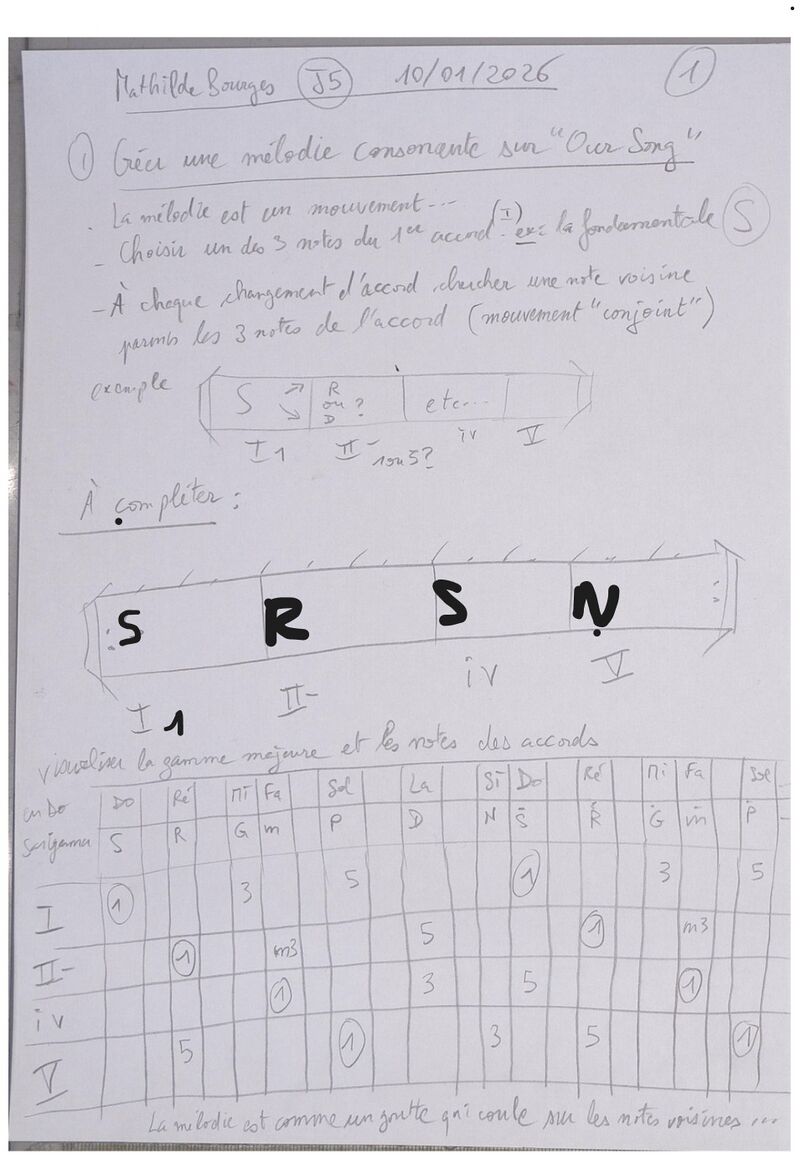 Mathilde Bourges J5 10/01/2026 1
1 Créer une mélodie consonante sur "Our Song"
. La mélodie est un mouvement...
- Choisir un des 3 notes du 1er accord (I) - ex: la fondamentale S
- À chaque changement d'accord, chercher une note voisine
parmis les 3 notes de l'accord (mouvement "conjoint")
exemple
S ↗ ↘ R ou D ? etc...
I 1 II- 1 ou 5? iv V
À compléter :
S R S N
I 1 II- iv V
visualiser la gamme majeure et les notes des accords
en Do Do Ré Mi Fa Sol La Si Do Ré Mi Fa Sol
Sarigama S R G m P D N Ṡ Ṙ Ġ ṁ Ṗ
I 1 3 5 1 3 5
II- 1 m3 5 1 m3
iv 1 3 5 1
V 5 1 3 5 1
La mélodie est comme un goutte qui coule sur les notes voisines ...